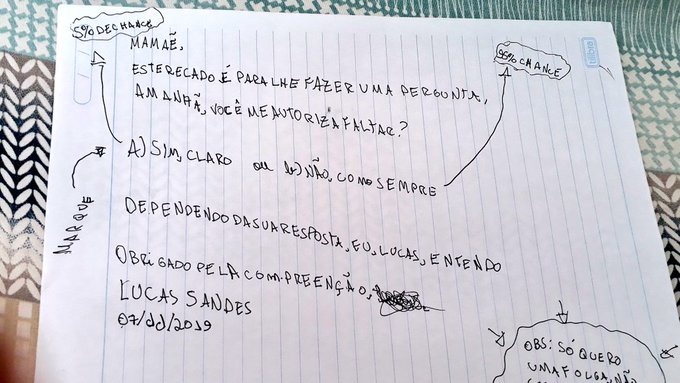 5% DE CHANCE
MAMAẼ,
95% CHANCE
ESTE RECADO É PARA LHE FAZER UMA PERGUNTA,
AMANHÃ, VOCÊ ME AUTORIZA FALTAR?
A) SIM, CLARO OU b) NÃO, COMO SEMPRE
MARQUE
DEPENDENDO DA SUA RESPOSTA, EU, LUCAS, ENTENDO
OBRIGADO PELA COMPREENÇÃO,
LUCAS SANDES
07/dd/2019
OBS: SÓ QUERO
UMA FOLGA, NÃO